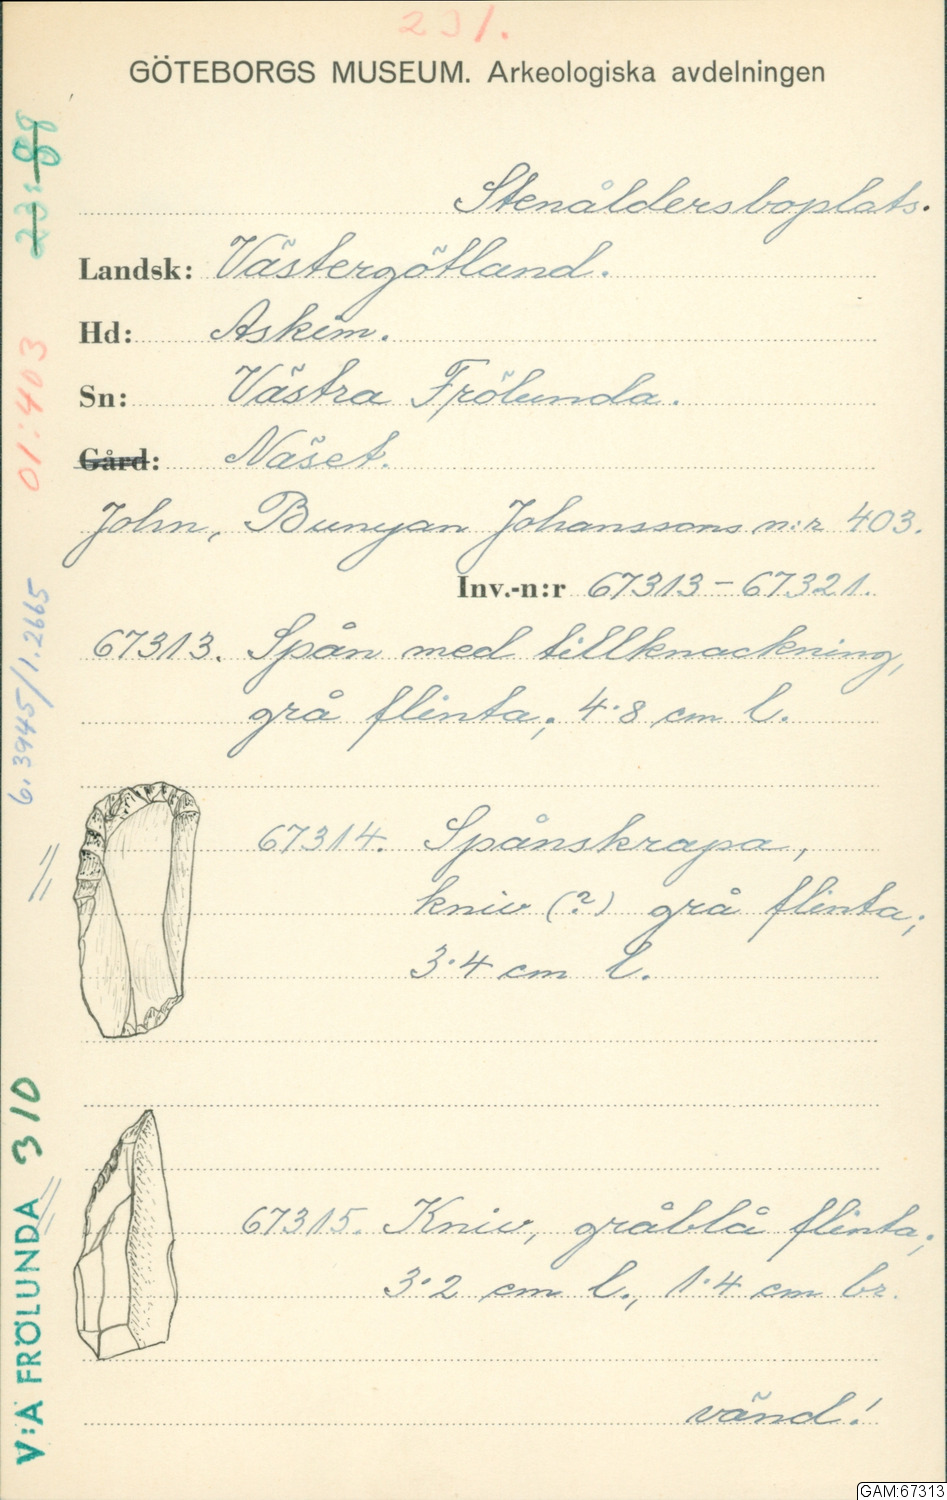 231.
GÖTEBORGS MUSEUM. Arkeologiska avdelningen
Stenåldersboplats.
Landsk: Västergötland.
Hd: Askim.
Sn: Västra Frölunda.
Gård: Näset.
John, Bunyan Johanssons n:r 403.
Inv.-n:r 67313-67321.
67313. Spån med tillknackning,
grå flinta; 4.8 cm l.
67314. Spånskrapa,
kniv (?) grå flinta;
3.4 cm l.
67315. Kniv, gråblå flinta;
3.2 cm l., 1.4 cm br.
vänd!
23:88
01:403
6.3945/1.2665
V:A FRÖLUNDA 310
GAM:67313